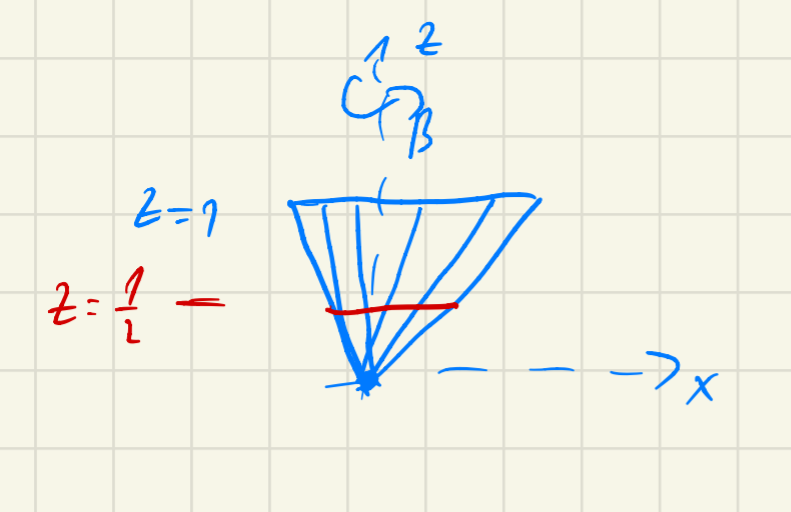 z
β
z=1
z=1/2
x